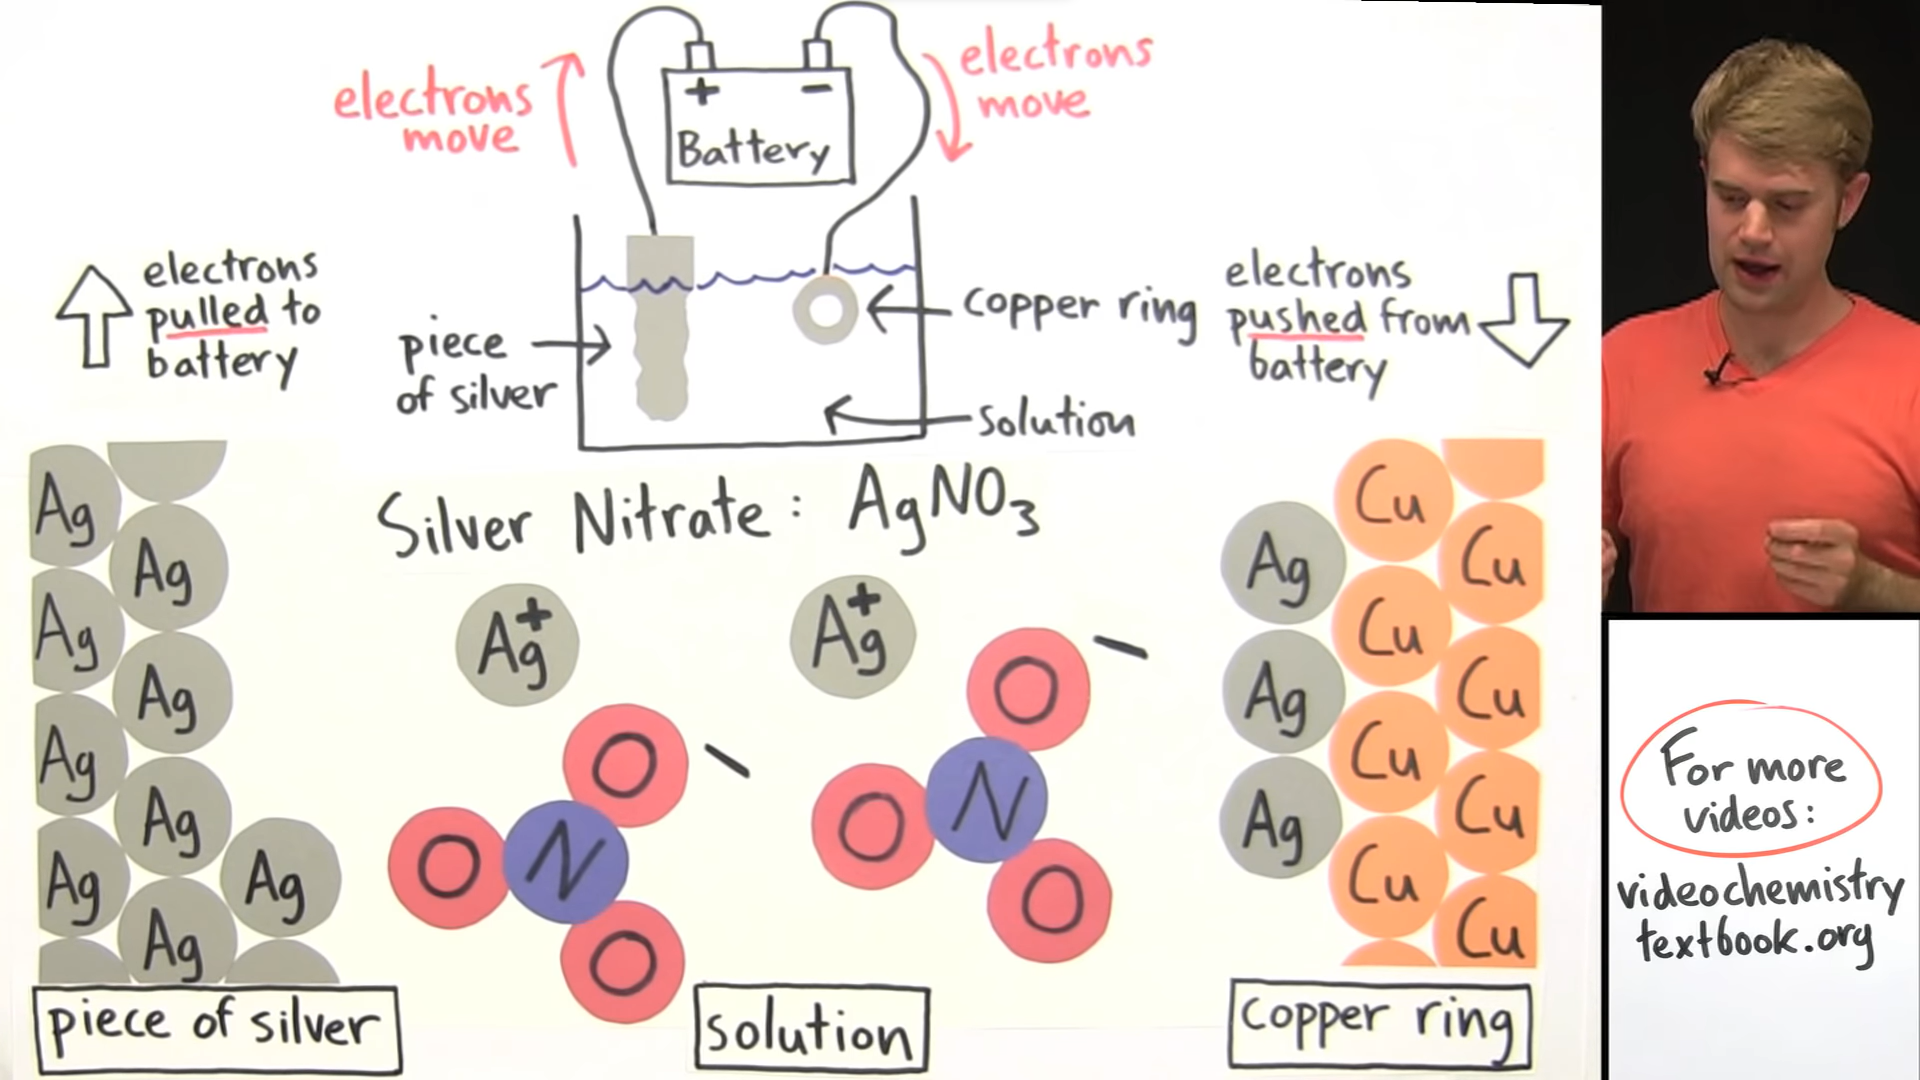 electrons
move
+ −
Battery
electrons
move
electrons
pulled to
battery
piece
of silver
copper ring
solution
electrons
pushed from
battery
Silver Nitrate: AgNO₃
Ag
Ag
Ag
Ag
Ag
Ag
Ag
Ag
Ag
Ag⁺
Ag⁺
O −
O
N
O
O −
O
N
O
Ag
Ag
Ag
Cu
Cu
Cu
Cu
Cu
Cu
Cu
Cu
piece of silver
solution
copper ring
For more
videos:
videochemistry
textbook.org